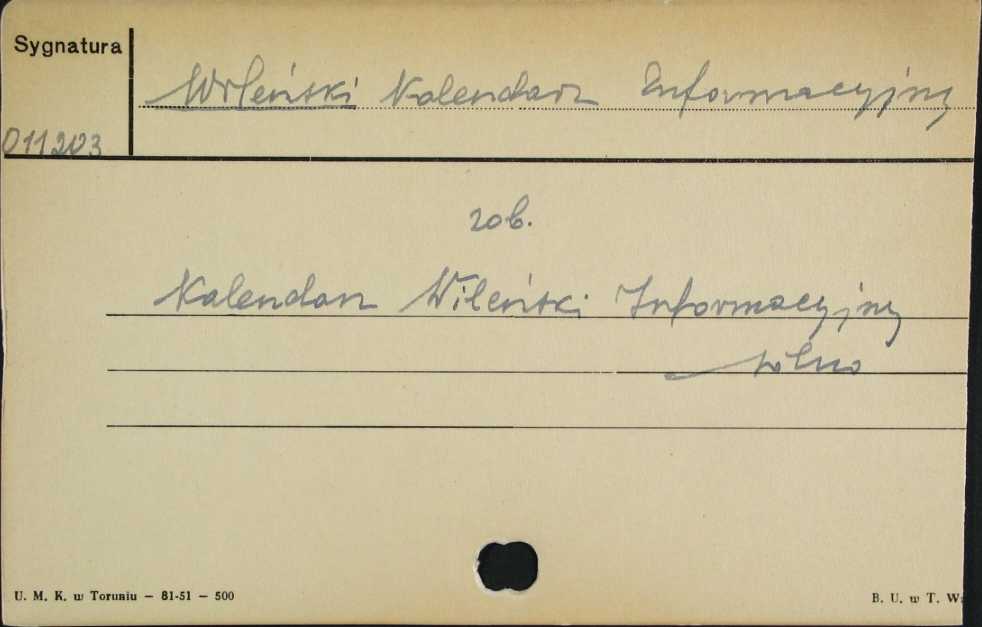 Sygnatura
Wileński Kalendarz Informacyjny
011203
zob.
Kalendarz Wileński Informacyjny
Wilno
U. M. K. w Toruniu – 81-51 – 500
B. U. w T. Wz